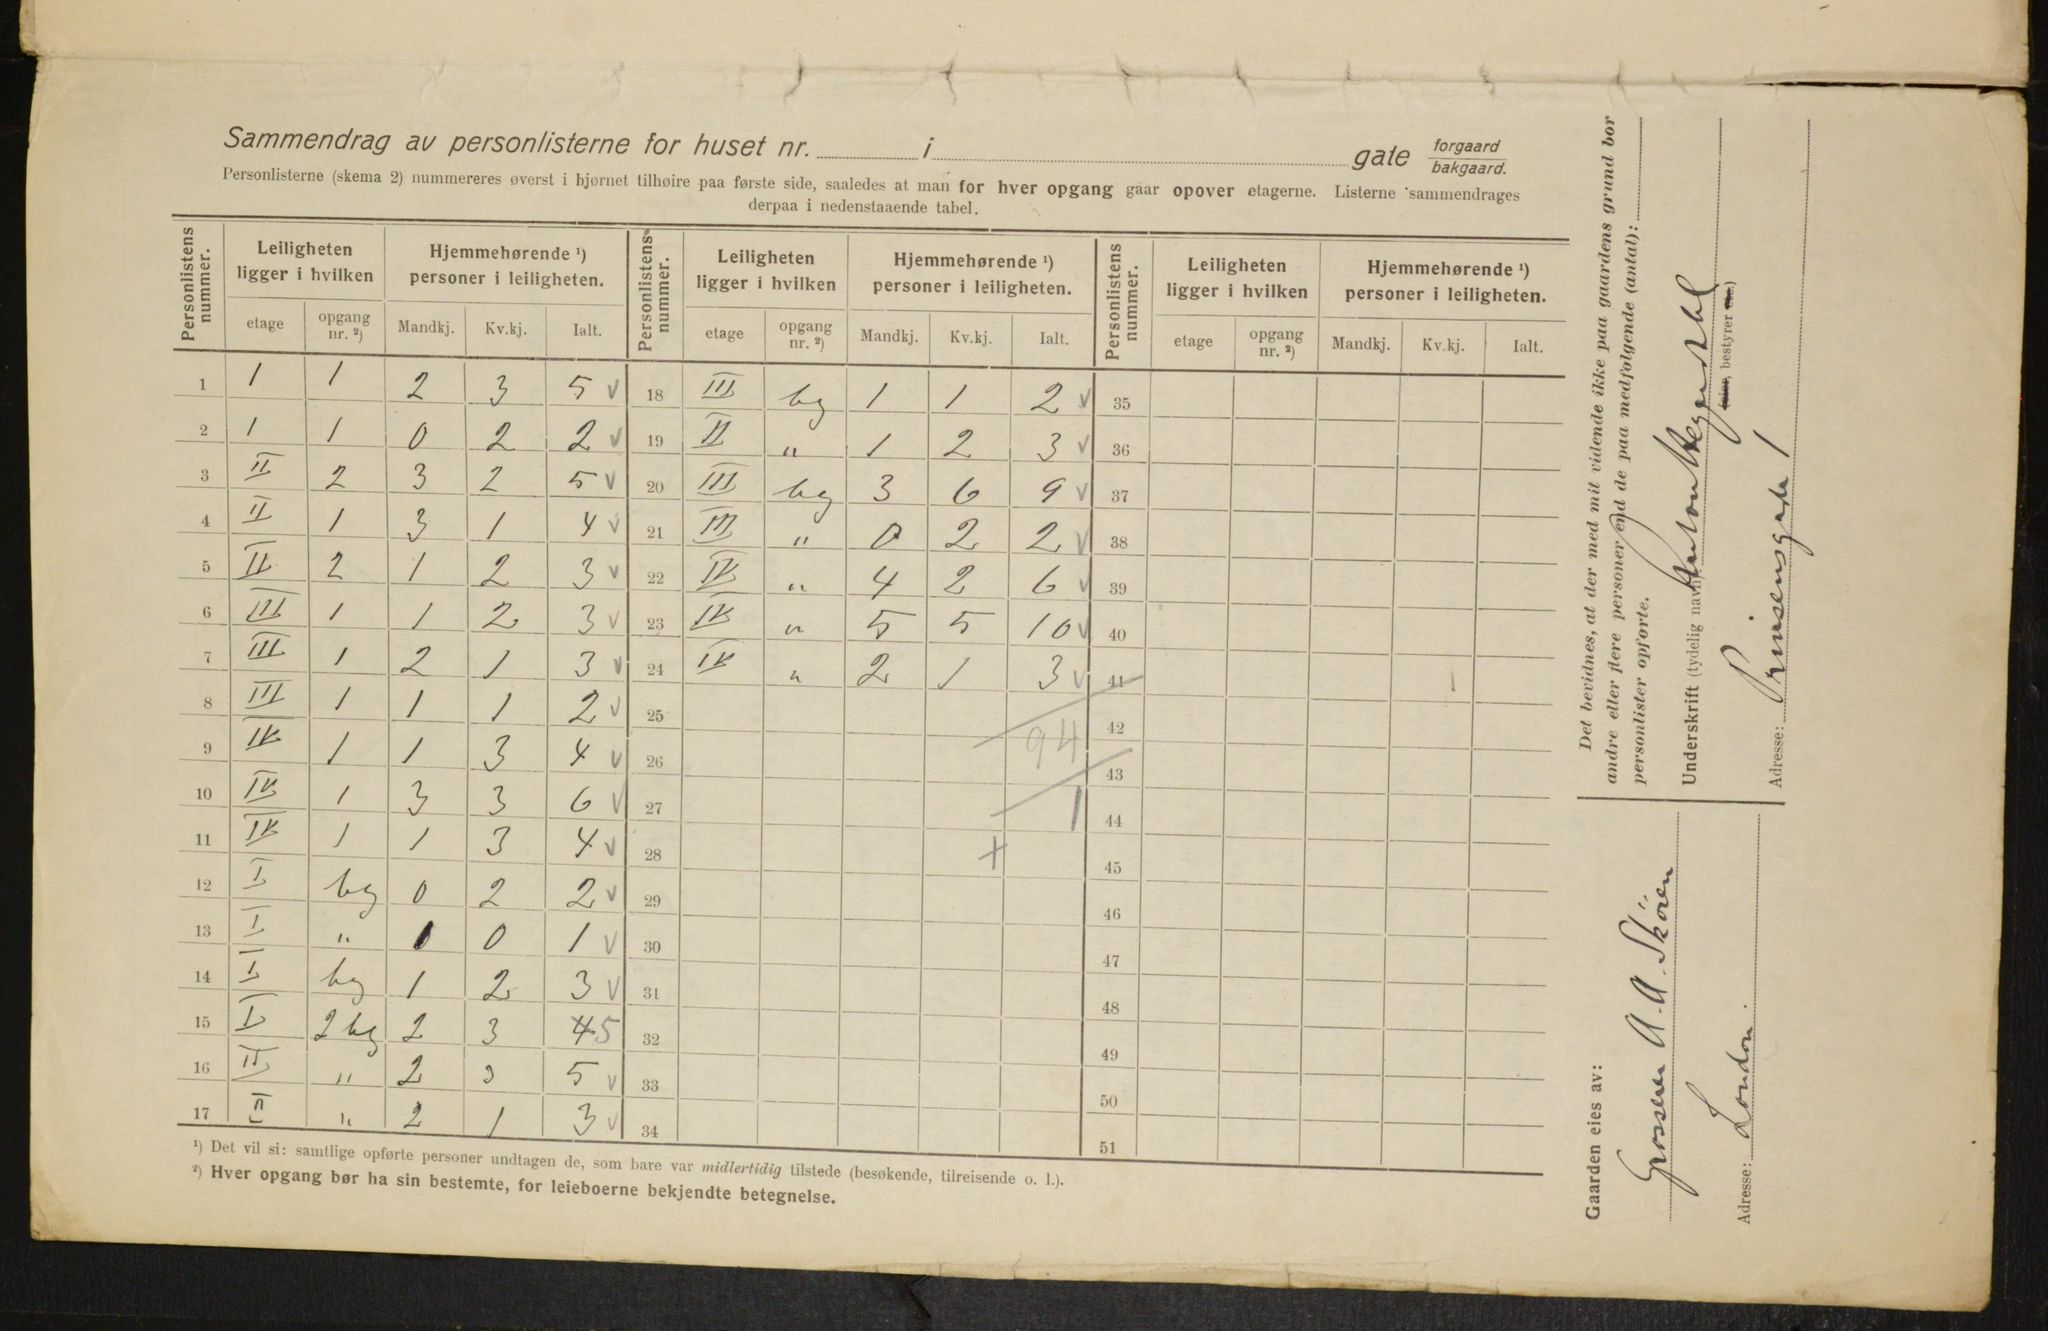 Sammendrag av personlisterne for huset nr. i gate forgaard bakgaard.
Personlisterne (skema 2) nummereres øverst i hjørnet tilhøire paa første side, saaledes at man for hver opgang gaar opover etagerne. Listerne sammendrages
derpaa i nedenstaaende tabel.
Personlistens nummer. Leiligheten ligger i hvilken Hjemmehørende ¹) personer i leiligheten. Personlistens nummer. Leiligheten ligger i hvilken Hjemmehørende ¹) personer i leiligheten. Personlistens nummer. Leiligheten ligger i hvilken Hjemmehørende ¹) personer i leiligheten.
etage opgang nr. ²) Mandkj. Kv.kj. Ialt. etage opgang nr. ²) Mandkj. Kv.kj. Ialt. etage opgang nr. ²) Mandkj. Kv.kj. Ialt.
1 1 1 2 3 5 v 18 III bg 1 1 2 v 35
2 1 1 0 2 2 v 19 II " 1 2 3 v 36
3 II 2 3 2 5 v 20 III bg 3 6 9 v 37
4 II 1 3 1 4 v 21 III " 0 2 2 v 38
5 II 2 1 2 3 v 22 IV " 4 2 6 v 39
6 III 1 1 2 3 v 23 IV " 5 5 10 v 40
7 III 1 2 1 3 v 24 IV " 2 1 3 v 41
8 III 1 1 1 2 v 25 42
9 IV 1 1 3 4 v 26 94 43
10 IV 1 3 3 6 v 27 1 44
11 IV 1 1 3 4 v 28 + 45
12 I bg 0 2 2 v 29 46
13 I " 1 0 1 v 30 47
14 I bg 1 2 3 v 31 48
15 I 2 bg 2 3 4 5 32 49
16 II " 2 3 5 v 33 50
17 II " 2 1 3 v 34 51
¹) Det vil si: samtlige opførte personer undtagen de, som bare var midlertidig tilstede (besøkende, tilreisende o. l.).
²) Hver opgang bør ha sin bestemte, for leieboerne bekjendte betegnelse.
Det bevidnes, at der med mit vidende ikke paa gaardens grund bor
andre eller flere personer end de paa medfølgende (antal):
personlister opførte.
Underskrift (tydelig navn): Anton
(eier, bestyrer etc.)
Adresse: Prinsensgade 1
Gaarden eies av:
Grosserer A. A. Skören
Adresse: London.